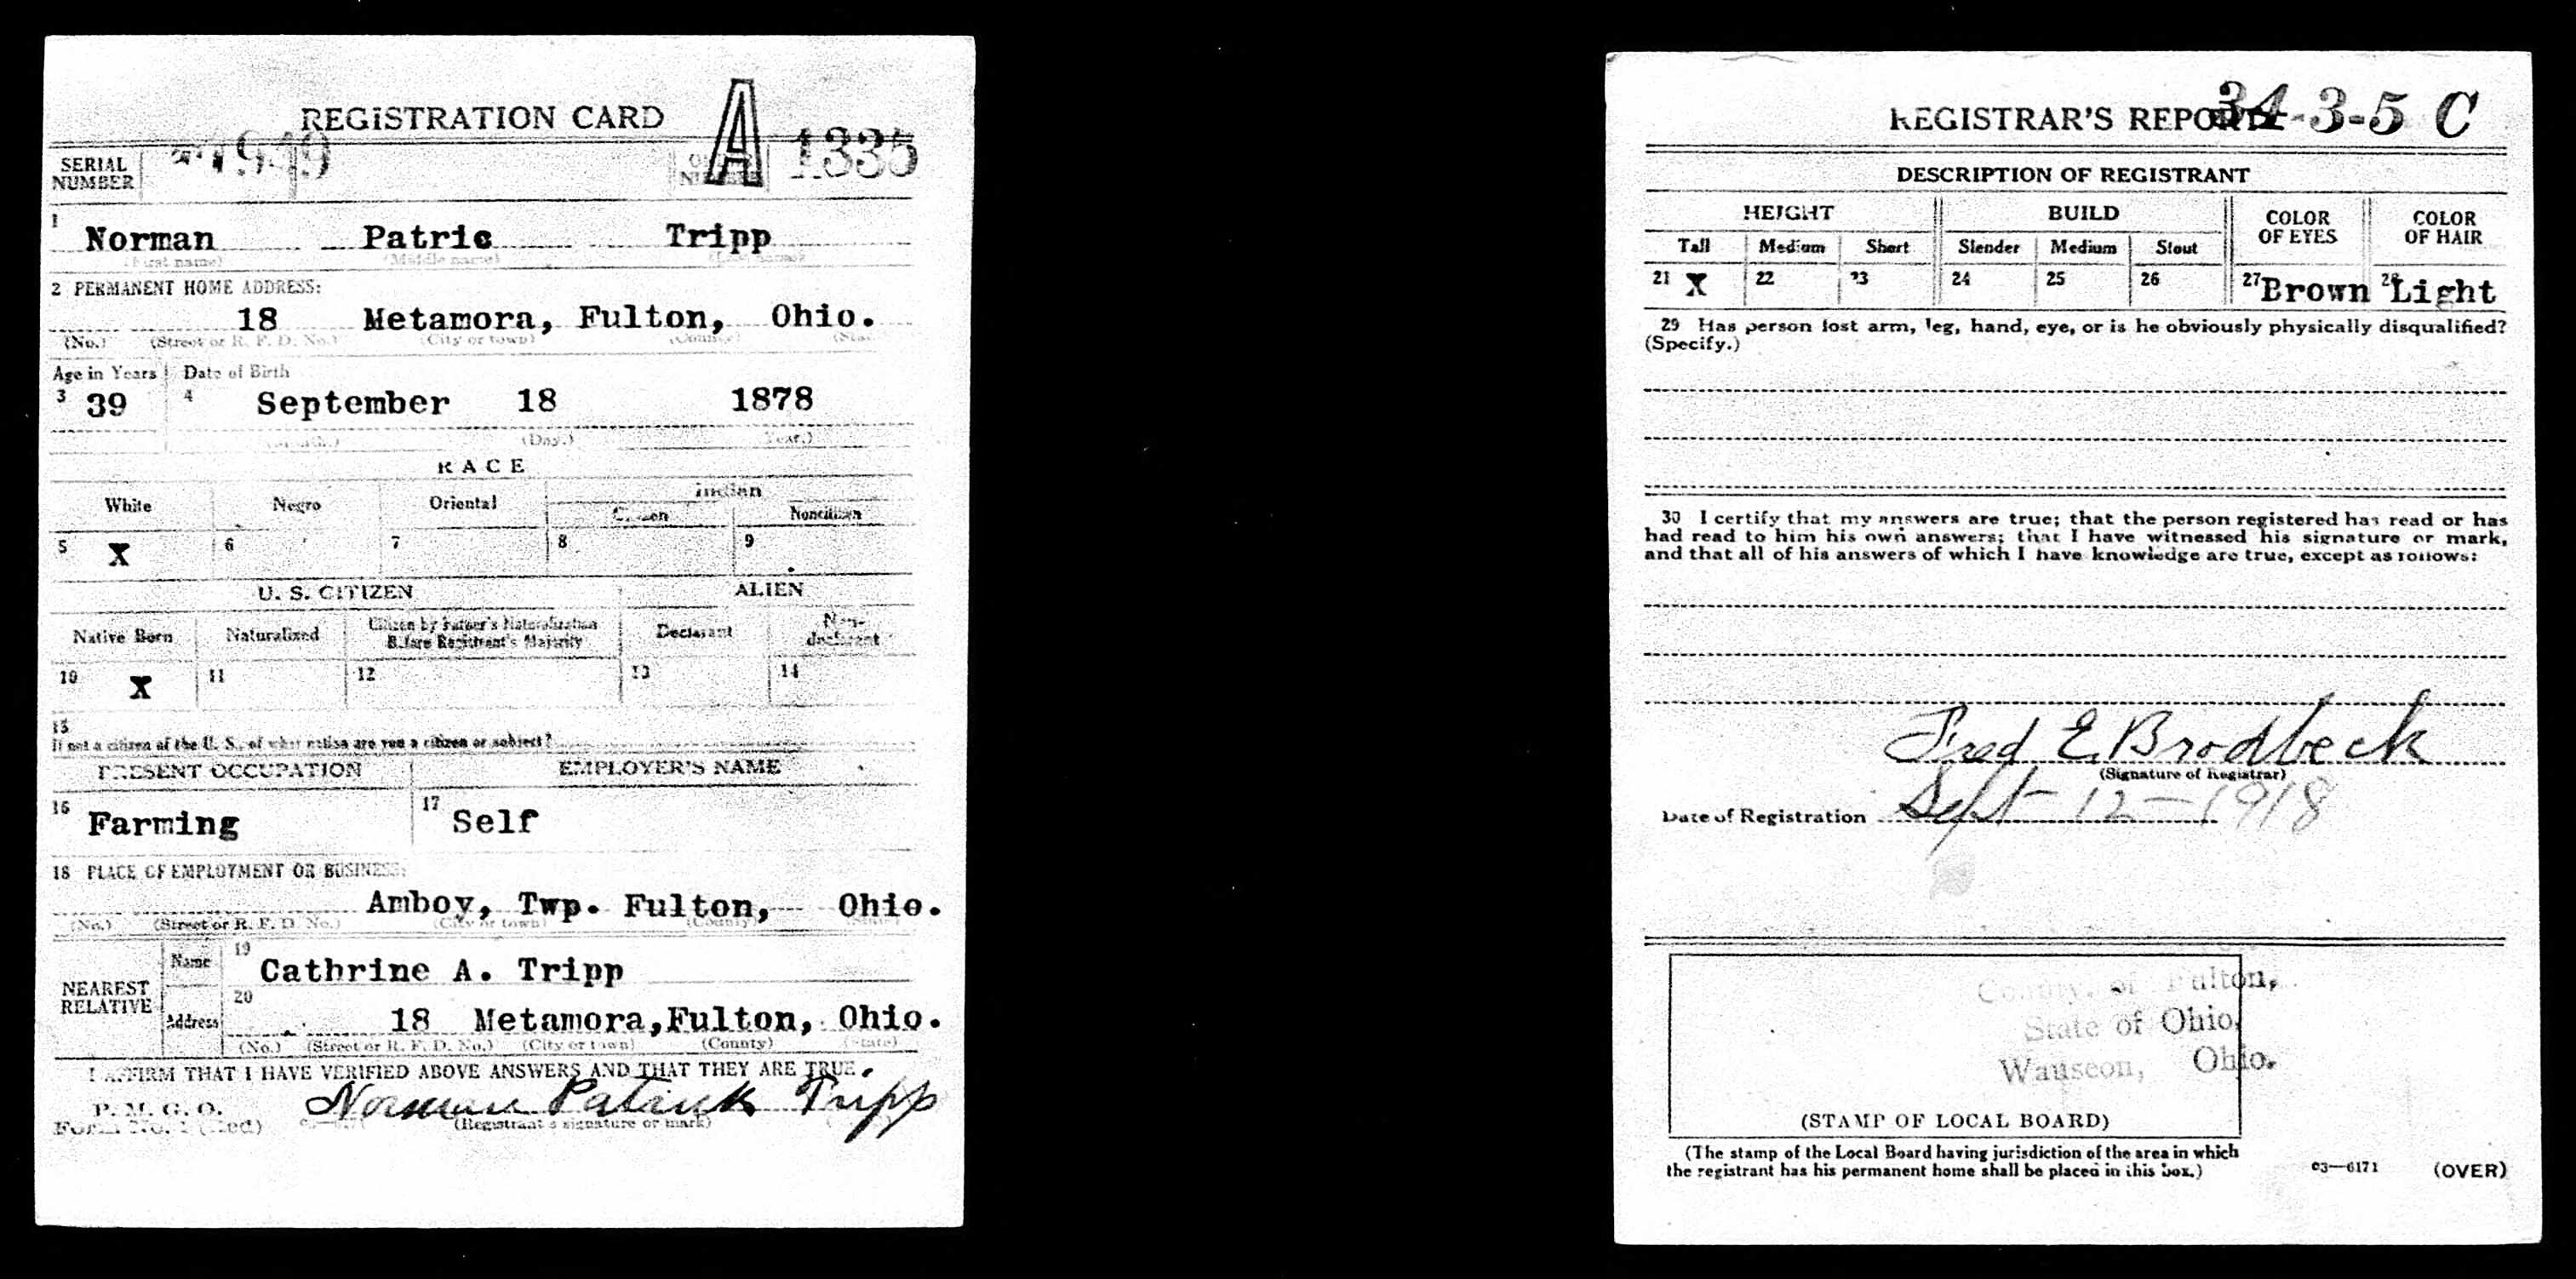 REGISTRATION CARD A
SERIAL NUMBER ORDER NUMBER 1335
1 Norman Patric Tripp
(First name) (Middle name) (Last name)
2 PERMANENT HOME ADDRESS:
18 Metamora, Fulton, Ohio.
(No.) (Street or R. F. D. No.) (City or town) (County) (State)
Age in Years Date of Birth
3 39 4 September 18 1878
(Month.) (Day.) (Year.)
RACE
White Negro Oriental Indian
Citizen Noncitizen
5 X 6 7 8 9
U. S. CITIZEN ALIEN
Native Born Naturalized Citizen by Father's Naturalization Before Registrant's Majority Declarant Non-declarant
10 X 11 12 13 14
15
If not a citizen of the U. S., of what nation are you a citizen or subject?
PRESENT OCCUPATION EMPLOYER'S NAME
16 Farming 17 Self
18 PLACE OF EMPLOYMENT OR BUSINESS:
Amboy, Twp. Fulton, Ohio.
(No.) (Street or R. F. D. No.) (City or town) (County) (State)
NEAREST RELATIVE
Name 19 Cathrine A. Tripp
Address 20 18 Metamora, Fulton, Ohio.
(No.) (Street or R. F. D. No.) (City or town) (County) (State)
I AFFIRM THAT I HAVE VERIFIED ABOVE ANSWERS AND THAT THEY ARE TRUE.
P. M. G. O.
Form No. 1 (Red) Norman Patrick Tripp
(Registrant's signature or mark)
REGISTRAR'S REPORT 34-3-5 C
DESCRIPTION OF REGISTRANT
HEIGHT BUILD COLOR OF EYES COLOR OF HAIR
Tall Medium Short Slender Medium Stout
21 X 22 23 24 25 26 27 Brown 28 Light
29 Has person lost arm, leg, hand, eye, or is he obviously physically disqualified?
(Specify.)
30 I certify that my answers are true; that the person registered has read or has
had read to him his own answers; that I have witnessed his signature or mark,
and that all of his answers of which I have knowledge are true, except as follows:
Fred E. Brodbeck
(Signature of Registrar)
Date of Registration Sept 12-1918
County of Fulton,
State of Ohio,
Wauseon, Ohio.
(STAMP OF LOCAL BOARD)
(The stamp of the Local Board having jurisdiction of the area in which
the registrant has his permanent home shall be placed in this box.)
03—6171 (OVER)